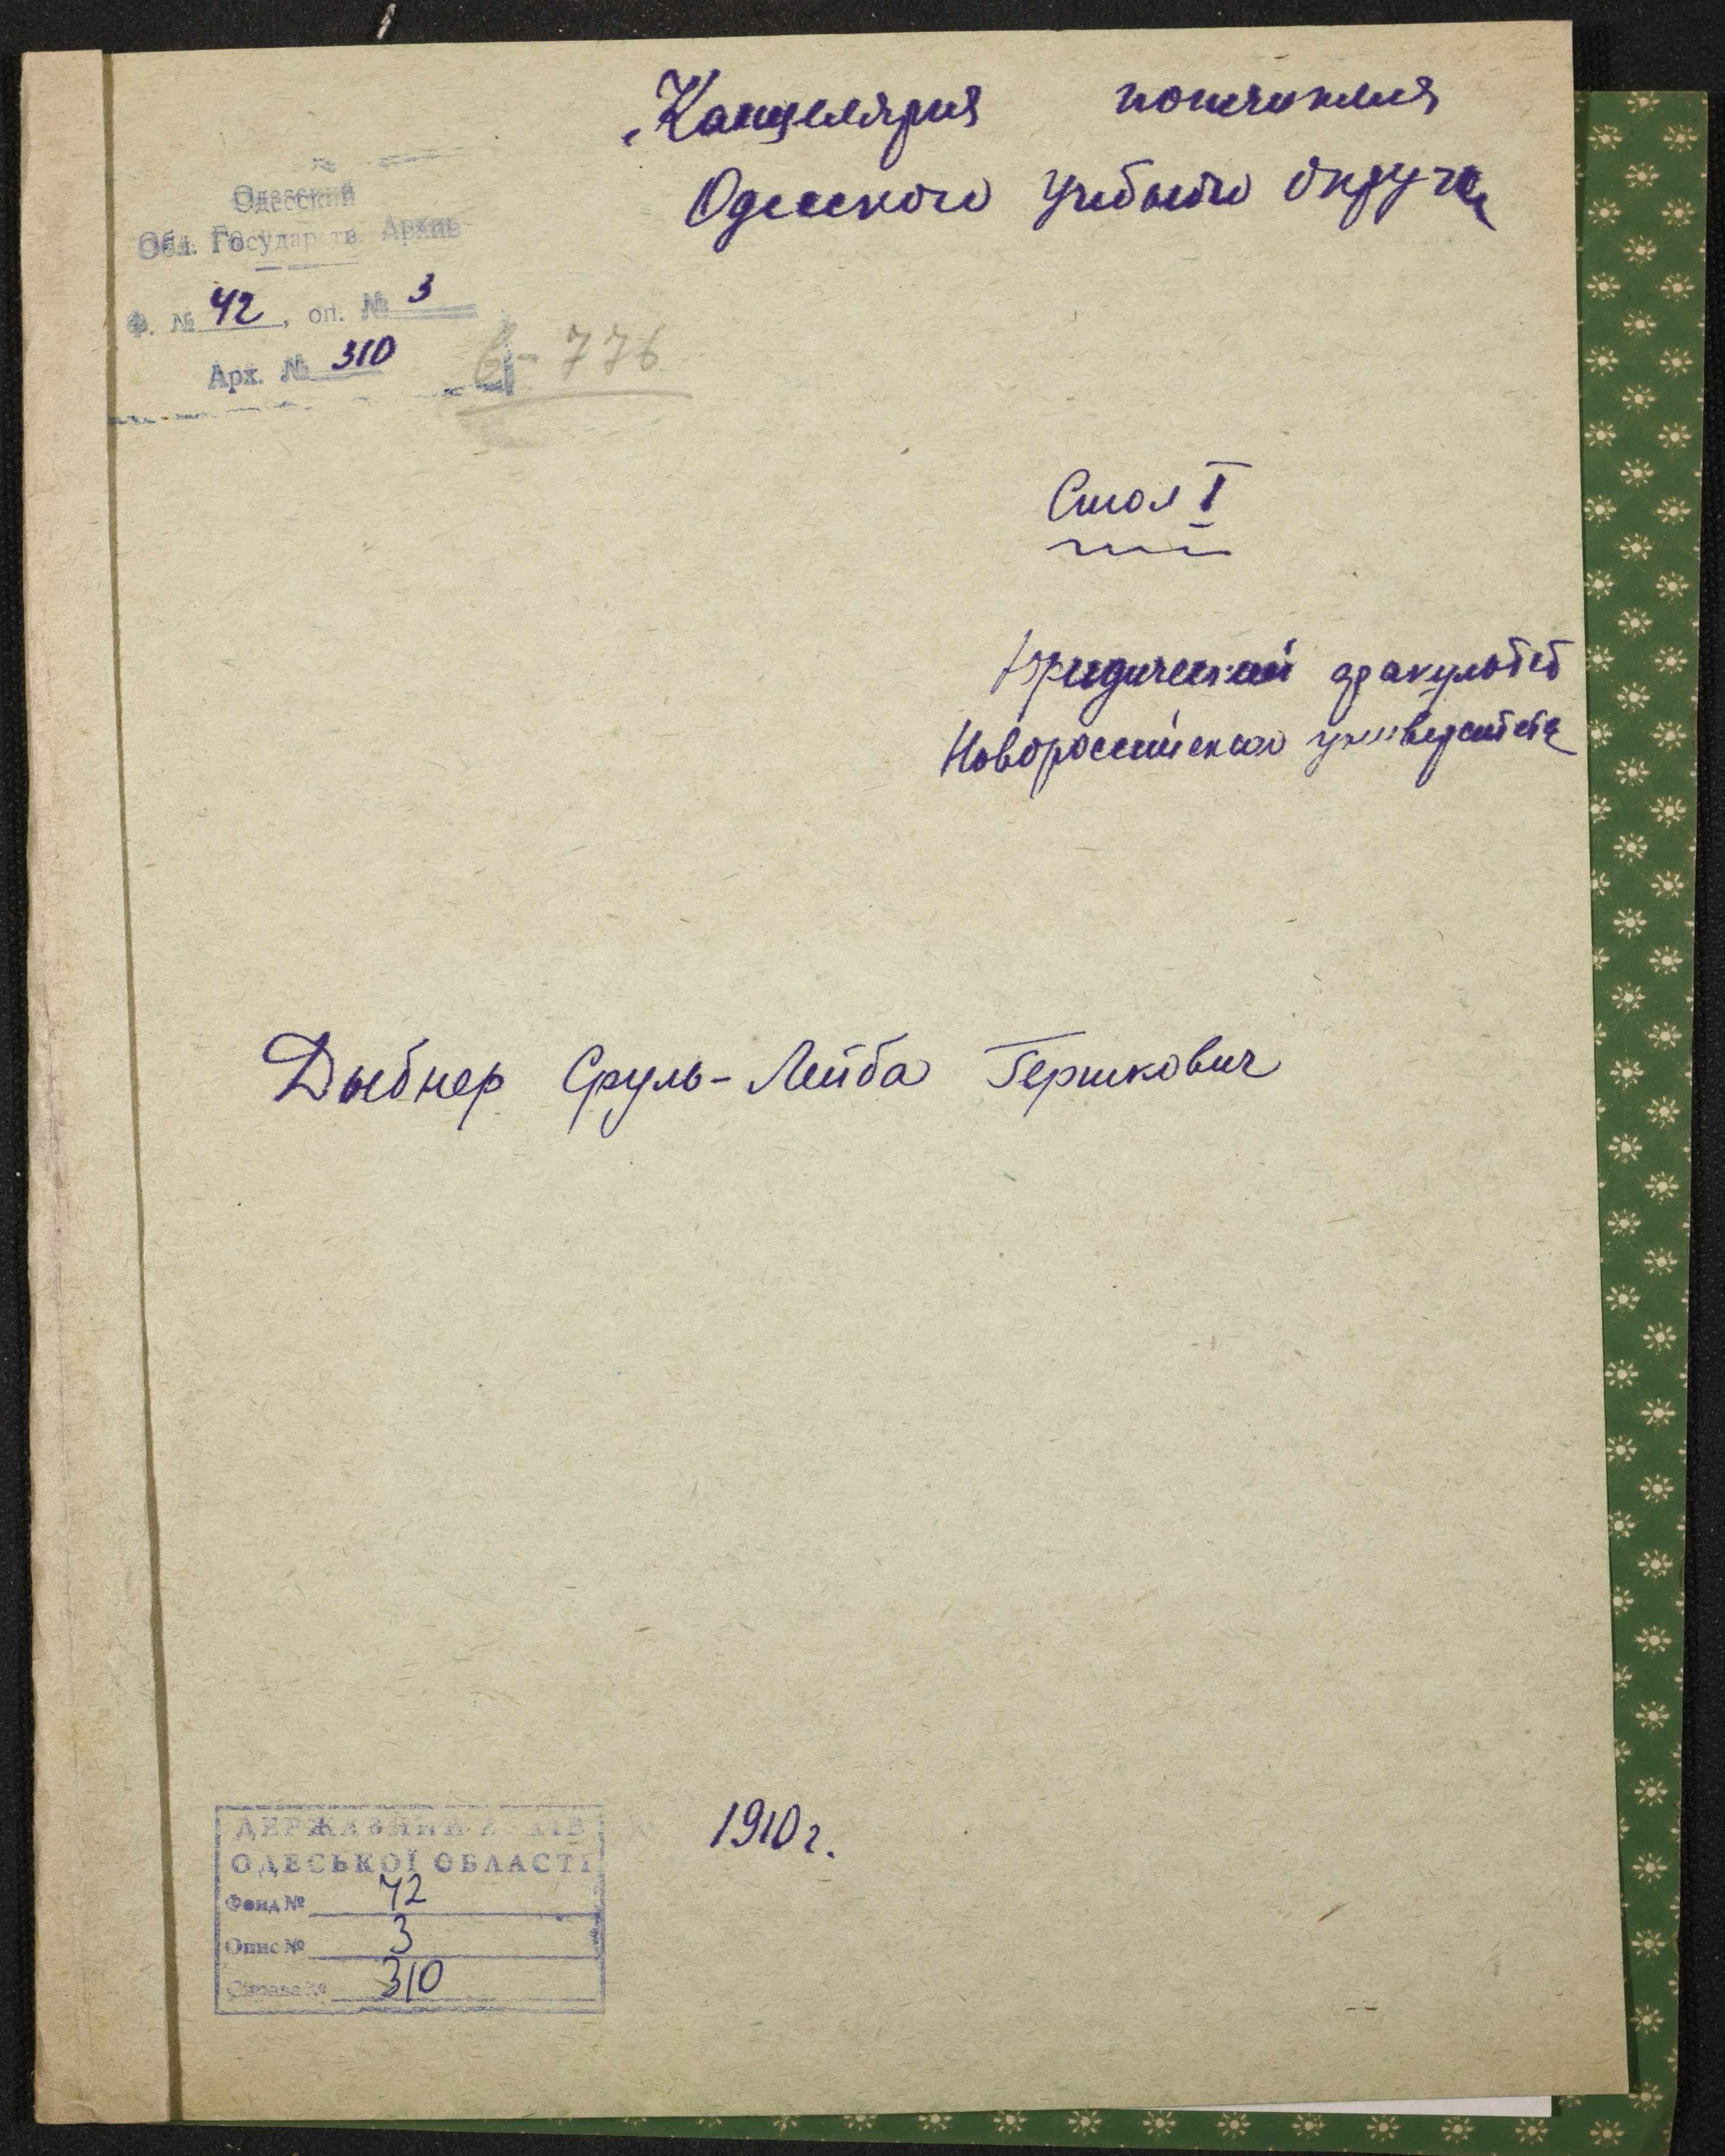 Канцелярия попечителя
Одесского Учебного Округа
Одесский
Обл. Государств. Архив
Ф. № 42, оп. № 3
Арх. № 310
776
Стол I
Юридический факультет
Новороссийского университета
Дыбнер Сруль-Лейба Гершкович
1910 г.
ДЕРЖАВНИЙ АРХІВ
ОДЕСЬКОЇ ОБЛАСТІ
Фонд № 42
Опис № 3
Справа № 310